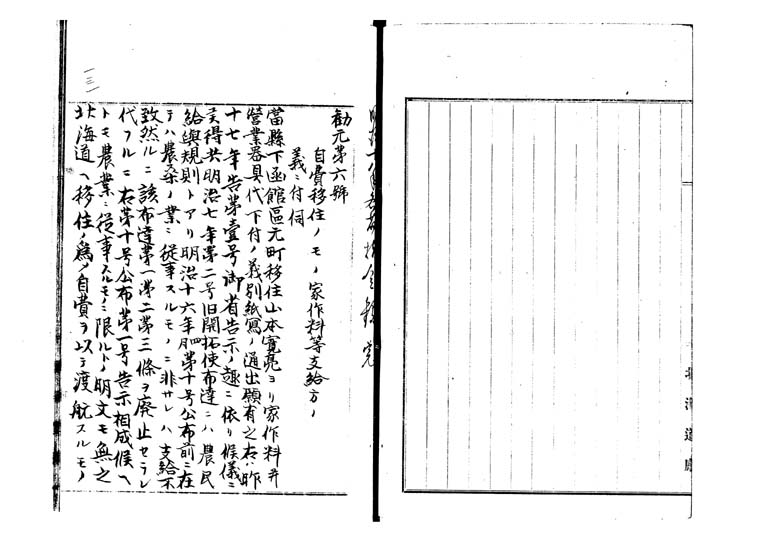 北海道廳
勸元第六號
自費移住ノモノ家作料等支給方ノ
義ニ付伺
當縣下函館區元町移住山本寛亮ヨリ家作料并
營業器具代下付ノ義別紙寫ノ通出願有之右ハ昨
十七年告第壹号御省告示ノ趣ニ依リ候儀ニ
候得共明治七年第二号旧開拓使布達ニハ農民
給與規則トアリ明治十六年 第十号公布前ニ在
テハ農桑ノ業ニ從事スルモノニ非サレハ支給不
致然ルニ該布達第一第二第三條ヲ廢止セラレ
代フルニ右第十号公布第一号告示相成候ヘ
トモ農業ニ從事スルモノニ限ルトノ明文モ無之
北海道ヘ移住ノ爲メ自費ヲ以テ渡航スルモノ
一三